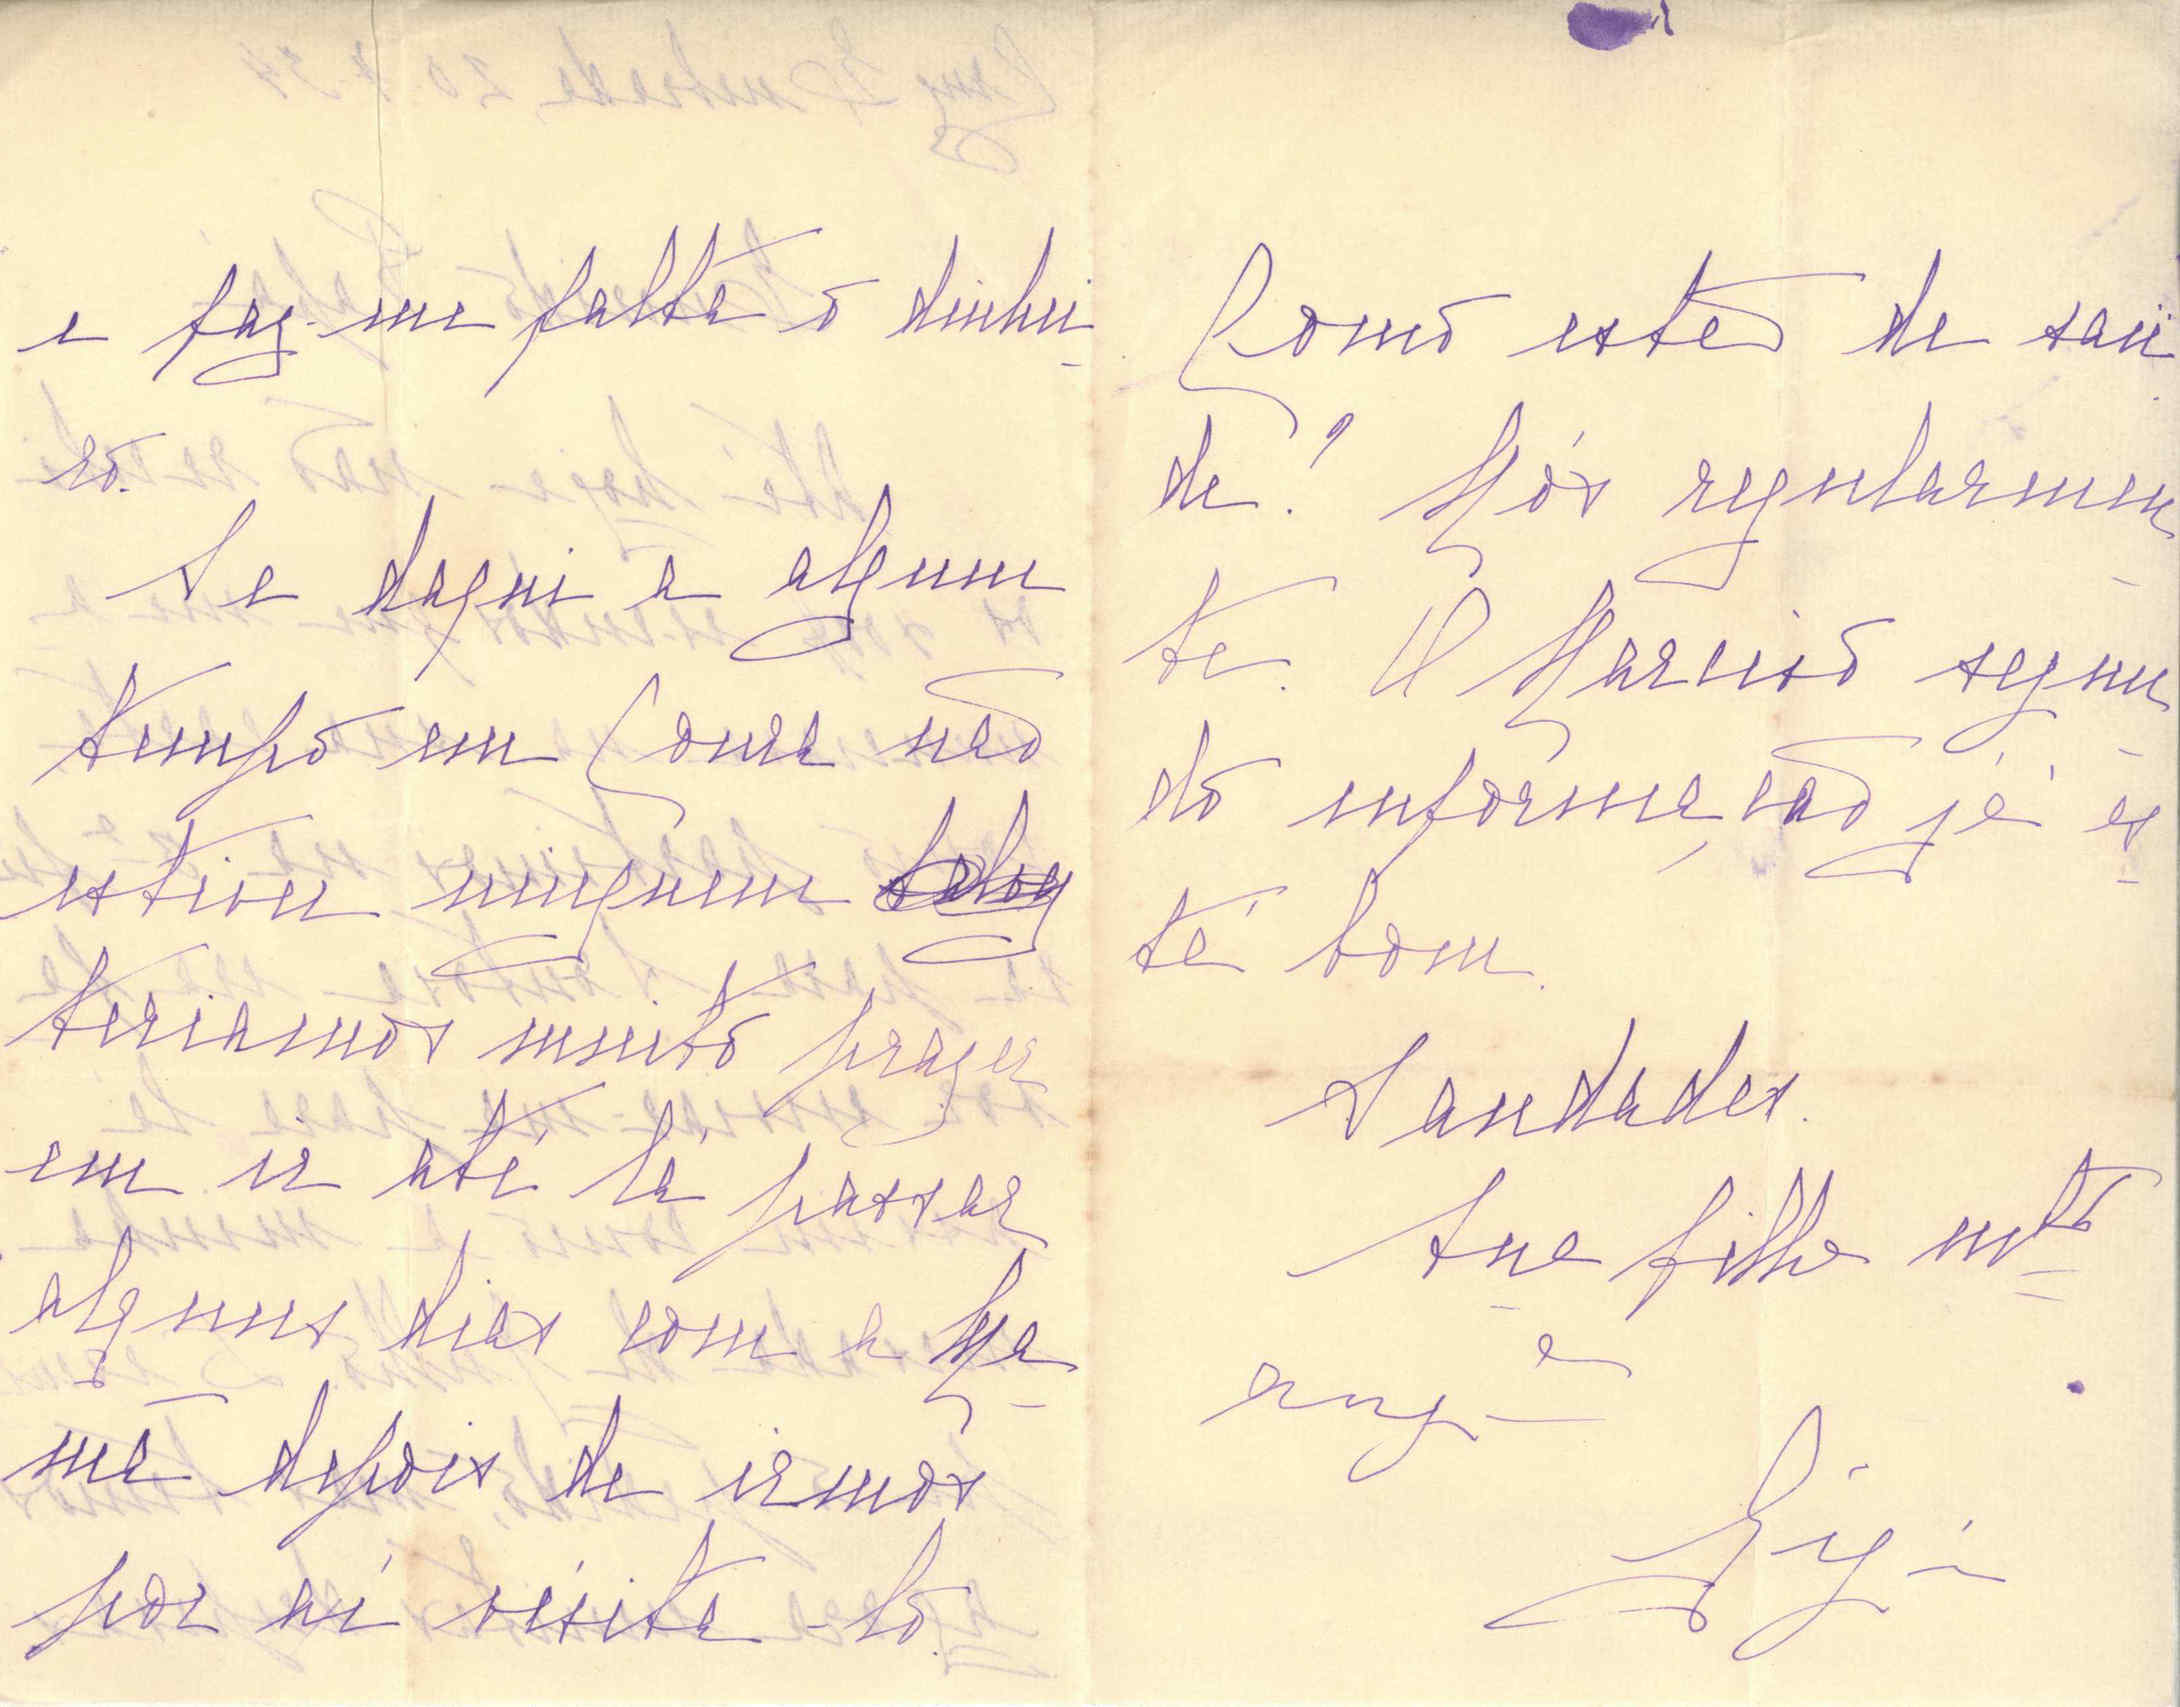 e faz-me falta o dinhei-
ro.
Se daqui a algum
tempo em Coura não
estiver ninguem
teriamos muito prazer
em ir até lá passar
alguns dias com a Ma-
mã depois de irmos
por aí visita-lo.
Como está de saú
de? Nós regularmen-
te. O Narciso segun-
do informação já es-
tá bom.
Saudades.
Sua filha mto
amga